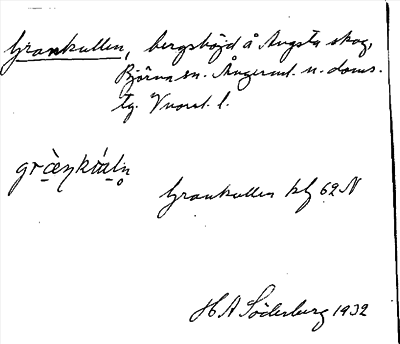 Grankullen, bergshöjd å Angsta skog,
Björna sn. Ångerml. n. doms.
tg. Vnorrl. l.
gràenkáalṇ
Grankullen kbl 62 N
H A Söderberg 1932